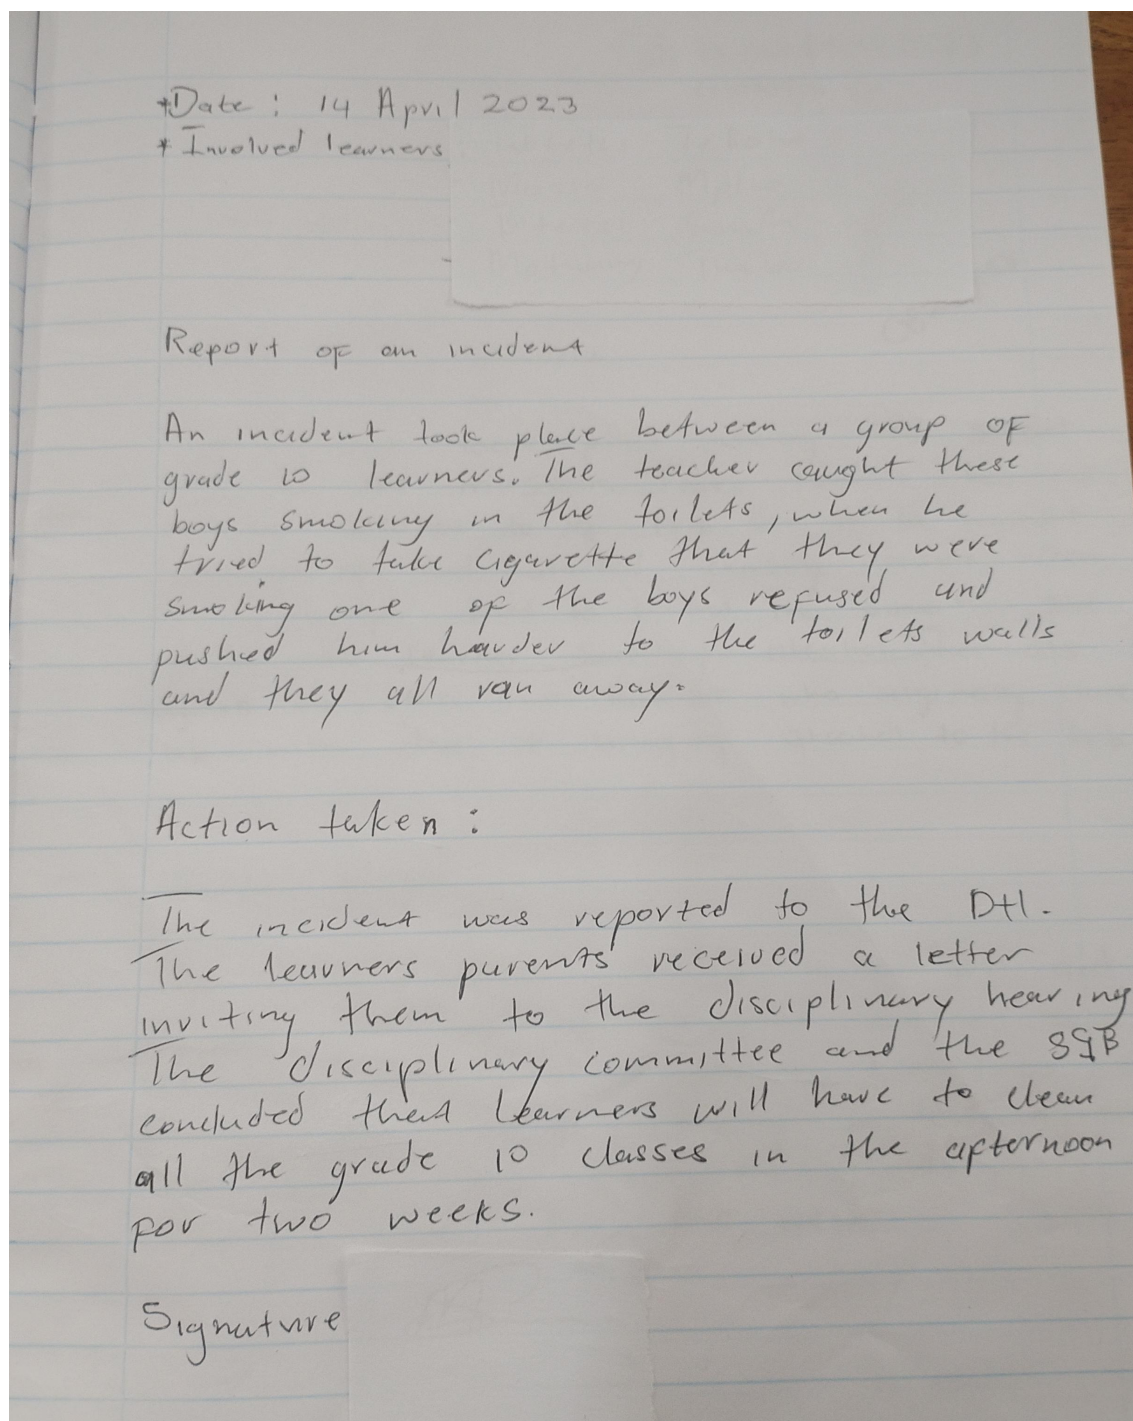 *Date : 14 April 2023
* Involved learners
Report of an incident
An incident took place between a group of
grade 10 learners. The teacher caught these
boys smoking in the toilets, when he
tried to take cigarette that they were
smoking one of the boys refused and
pushed him harder to the toilets walls
and they all ran away.
Action taken :
The incident was reported to the DH.
The learners parents received a letter
inviting them to the disciplinary hearing
The disciplinary committee and the SGB
concluded that learners will have to clean
all the grade 10 classes in the afternoon
for two weeks.
Signature